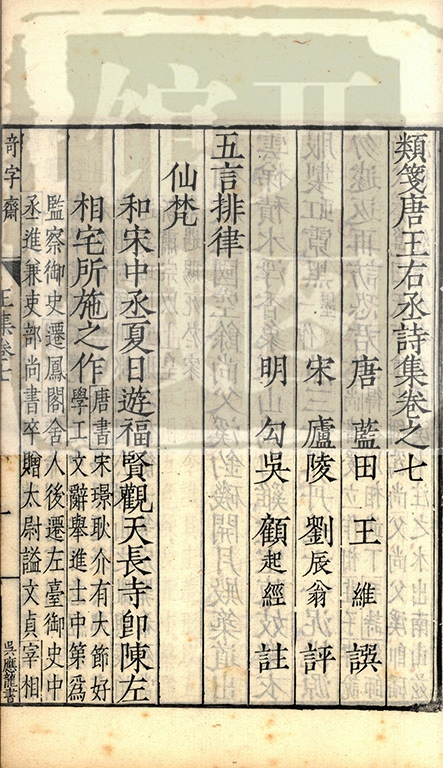 類箋唐王右丞詩集卷之七
唐 藍田 王維 譔
宋 廬陵 劉辰翁 評
明 勾吳 顧起經 註
五言排律
仙梵
和宋中丞夏日遊福賢觀天長寺即陳左
相宅所施之作 唐書宋璟耿介有大節好
學工文辭舉進士中第爲
監察御史遷鳳閣舍人後遷左臺御史中
丞進兼吏部尚書卒贈太尉謚文貞宰相
奇字齋
卷七
一
吳應龍書